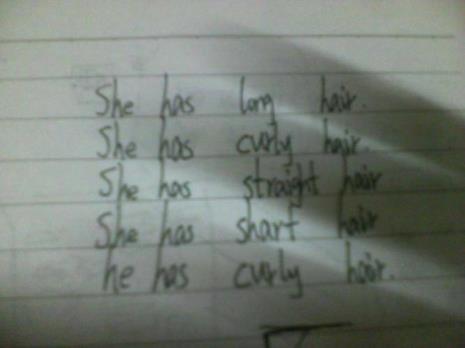 She has long hair.
She has curly hair.
She has straight hair
She has shart hair
he has curly hair.